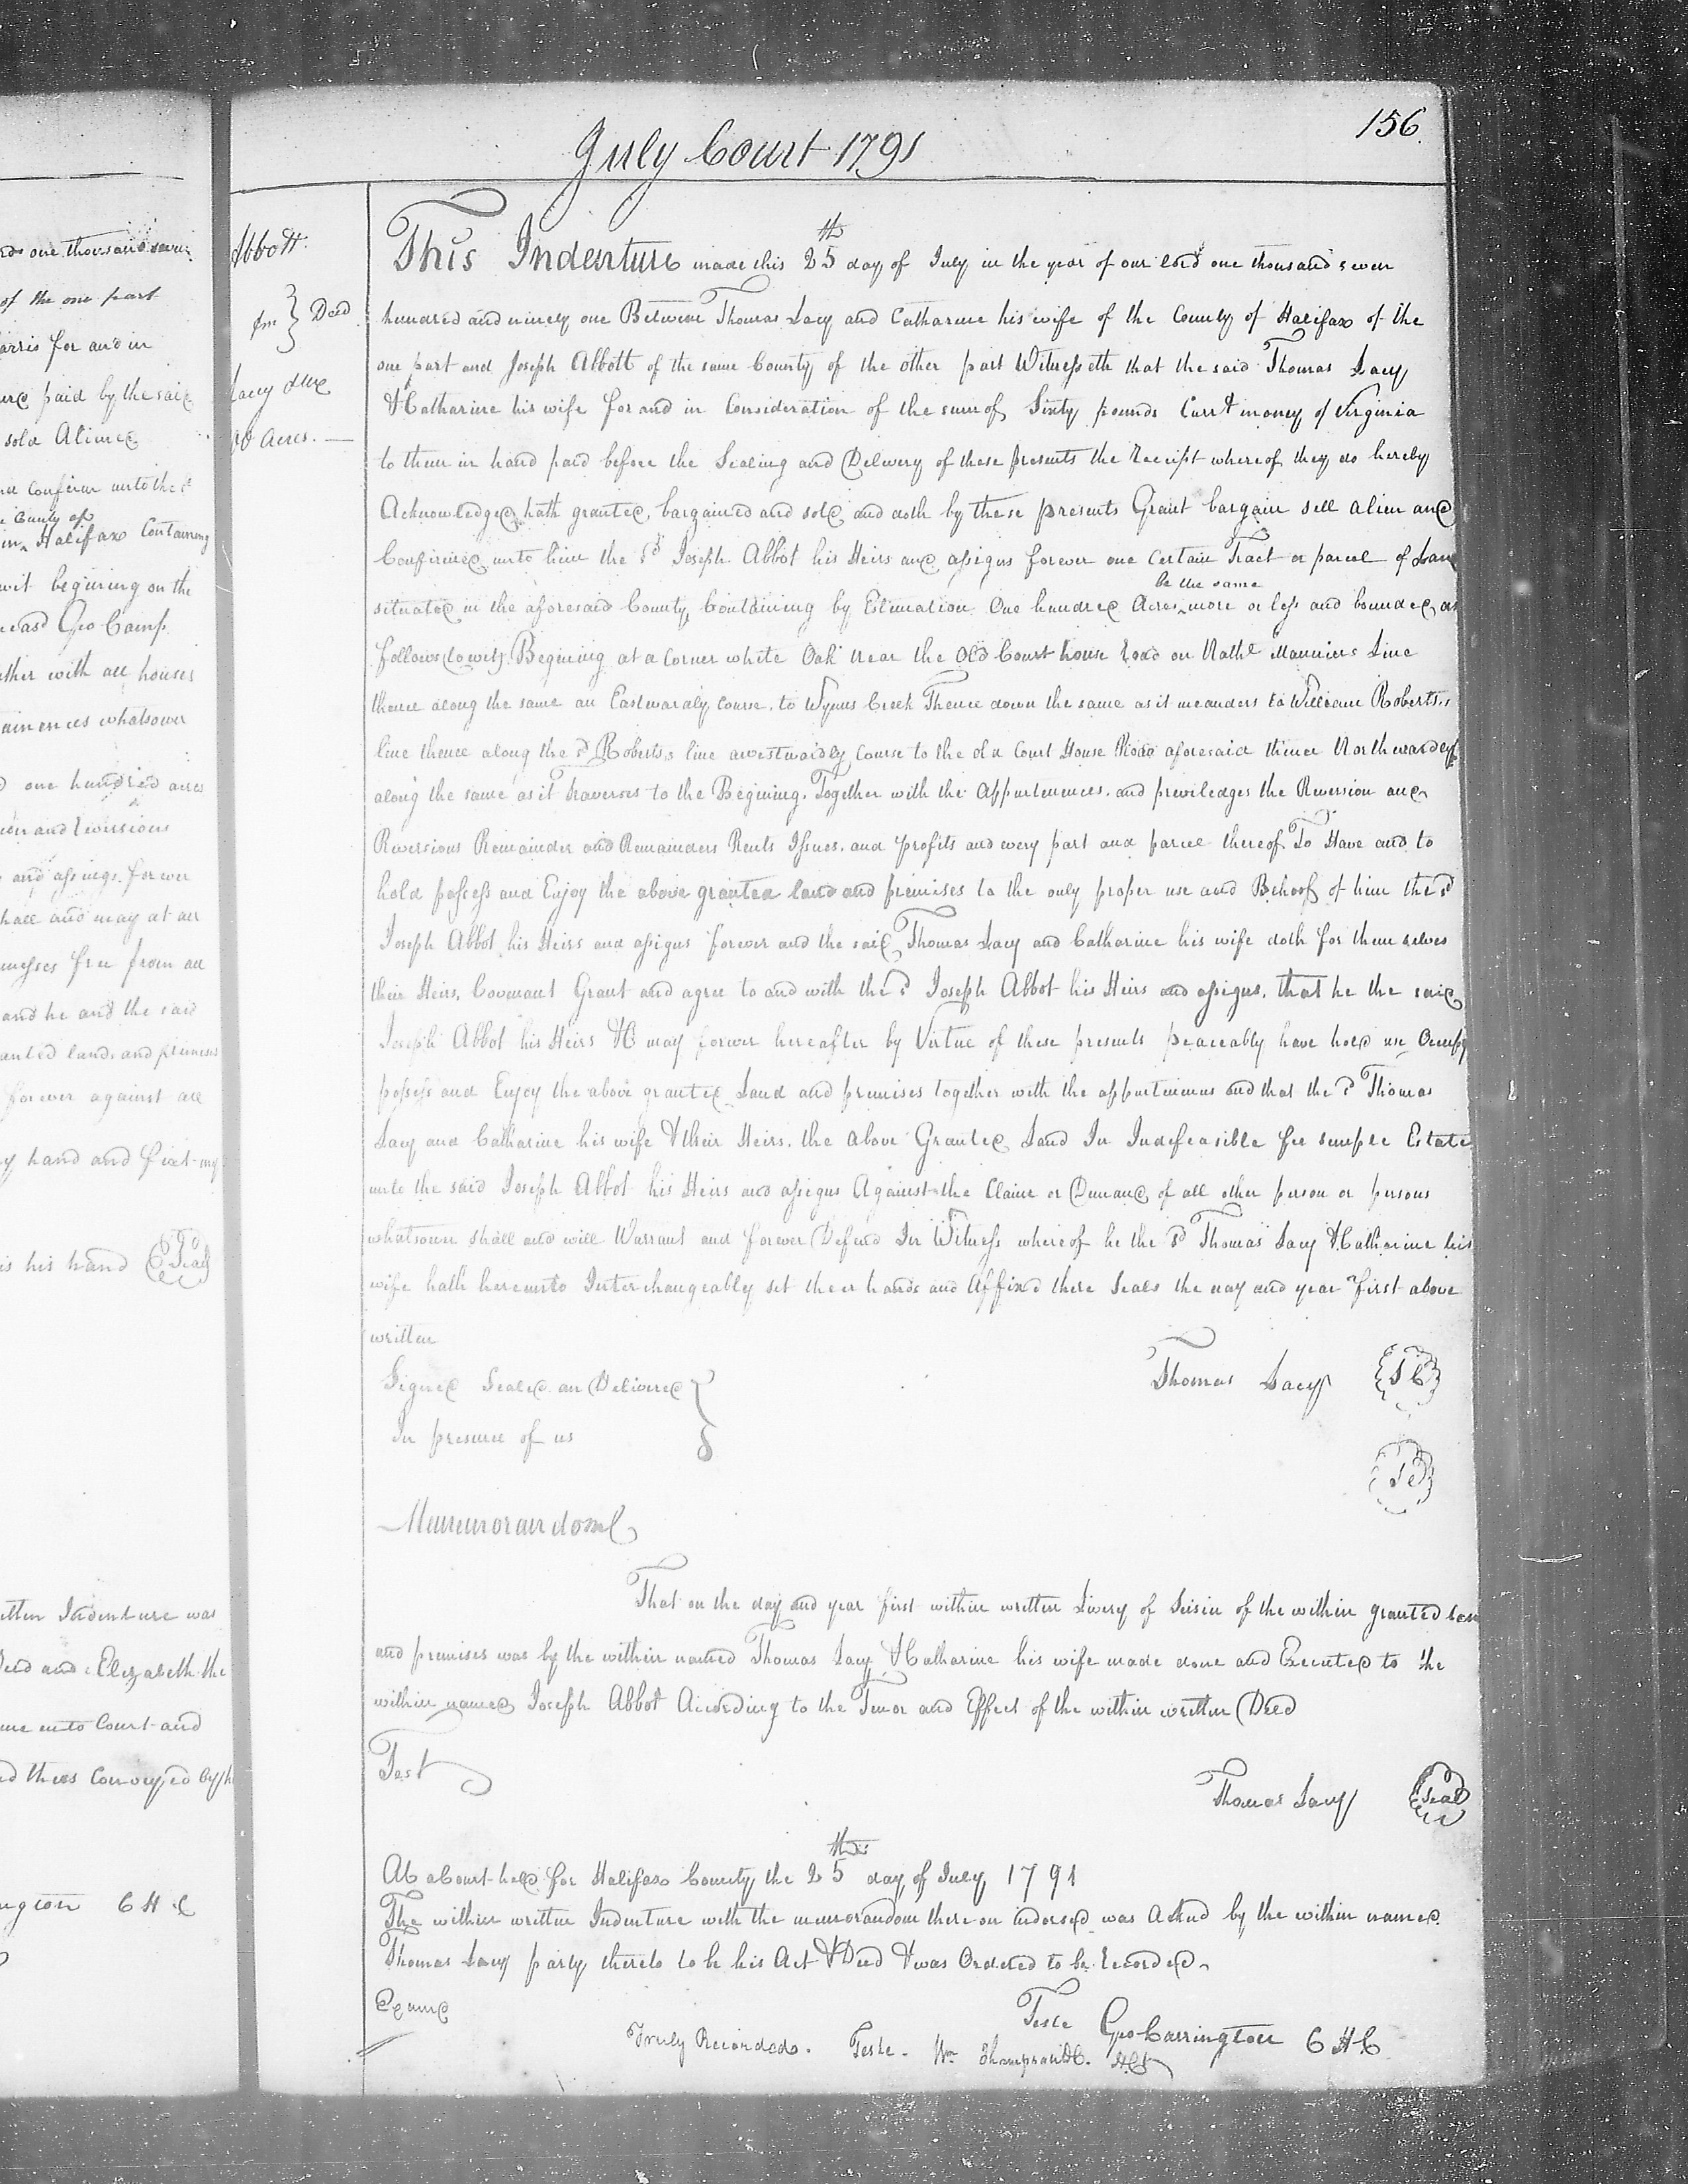 156.
July Court 1791
Abbott
fm } Deed
Lacy &Ux
Acres.
This Indenture made this 25th day of July in the year of our Lord one thousand seven
hundred and ninety one Between Thomas Lacy and Catharine his wife of the County of Halifax of the
one part and Joseph Abbott of the same County of the other part Witnesseth that the said Thomas Lacy
& Catharine his wife for and in Consideration of the sum of Sixty pounds Currt money of Virginia
to them in hand paid before the Sealing and Delivery of these presents the Receipt whereof they do hereby
Acknowledge, hath granted, bargained and sold and doth by these presents Grant bargain sell alien and
Confirmed unto him the sd Joseph Abbot his Heirs and assigns forever one certain Tract or parcel of Land
situated in the aforesaid County, Containing by Estimation One hundred Acres be the same more or less and bounded as
follows (to wit) Begining at a Corner white Oak near the Old Court house Road on Nathl Line
thence along the same an Eastwardly course, to Wynns Creek Thence down the same as it meanders to William Roberts,s
line thence along the sd Roberts,s line a westwardly Course to the old Court House Road aforesaid thence Northwardly
along the same as it traverses to the Begining. Together with the Appurtenances, and priviledges the Reversion and
Reversions Remainder and Remainders Rents Issues, and profits and every part and parcel thereof To Have and to
hold possess and Enjoy the above granted land and premises to the only proper use and Behoof of him the sd
Joseph Abbot his Heirs and assigns forever and the said Thomas Lacy and Catharine his wife doth for them selves
their Heirs, Covenant Grant and agree to and with the sd Joseph Abbot his Heirs and assigns, that he the said
Joseph Abbot his Heirs &C may forever hereafter by Virtue of these presents peaceably have hold use Occupy
possess and Enjoy the above granted Land and premises together with the appurtenances and that the sd Thomas
Lacy and Catharine his wife & their Heirs, the Above Granted Land In Indefeasible fee simple Estate
unto the said Joseph Abbot his Heirs and assigns Against the Claim or Demand of all other person or persons
whatsoever shall and will Warrant and forever Defend In Witness whereof he the sd Thomas Lacy & Catharine his
wife hath hereunto Interchangeably set their hands and Affixd there Seals the day and year first above
written
Signed Sealed an Delivered }
In presence of us
Thomas Lacy
Memorandom
That on the day and year first within written Livery of Seisin of the within granted
and premises was by the within named Thomas Lacy & Catharine his wife made done and Executed to the
within named Joseph Abbot According to the Tenor and Effect of the within written Deed
Test
Thomas Lacy Seal
At a Court held for Halifax County the 25th day of July 1791
The within written Indenture with the memorandom there on indorsed was by the within named
Thomas Lacy party thereto to be his Act & Deed & was Ordered to be Recorded
Examd
Teste Geo Carrington C H C
Truly Recorded. Teste. Wm
ed one thousand seven
of the one part
arris for and in
paid by the said
sold Aliened
Confirm unto the sd
County of
in Halifax Containing
wit begining on the
Geo Camp
ther with all houses
whatsoever
one hundred acres
and Reversions
and assings forever
hall and may at all
free from all
and he and the said
anted land, and premises
forever against all
y hand and fixt my
is his hand Seal
itten Indenture was
Deed and Elizabeth the
me into Court and
Conveyed by
ngton C H C